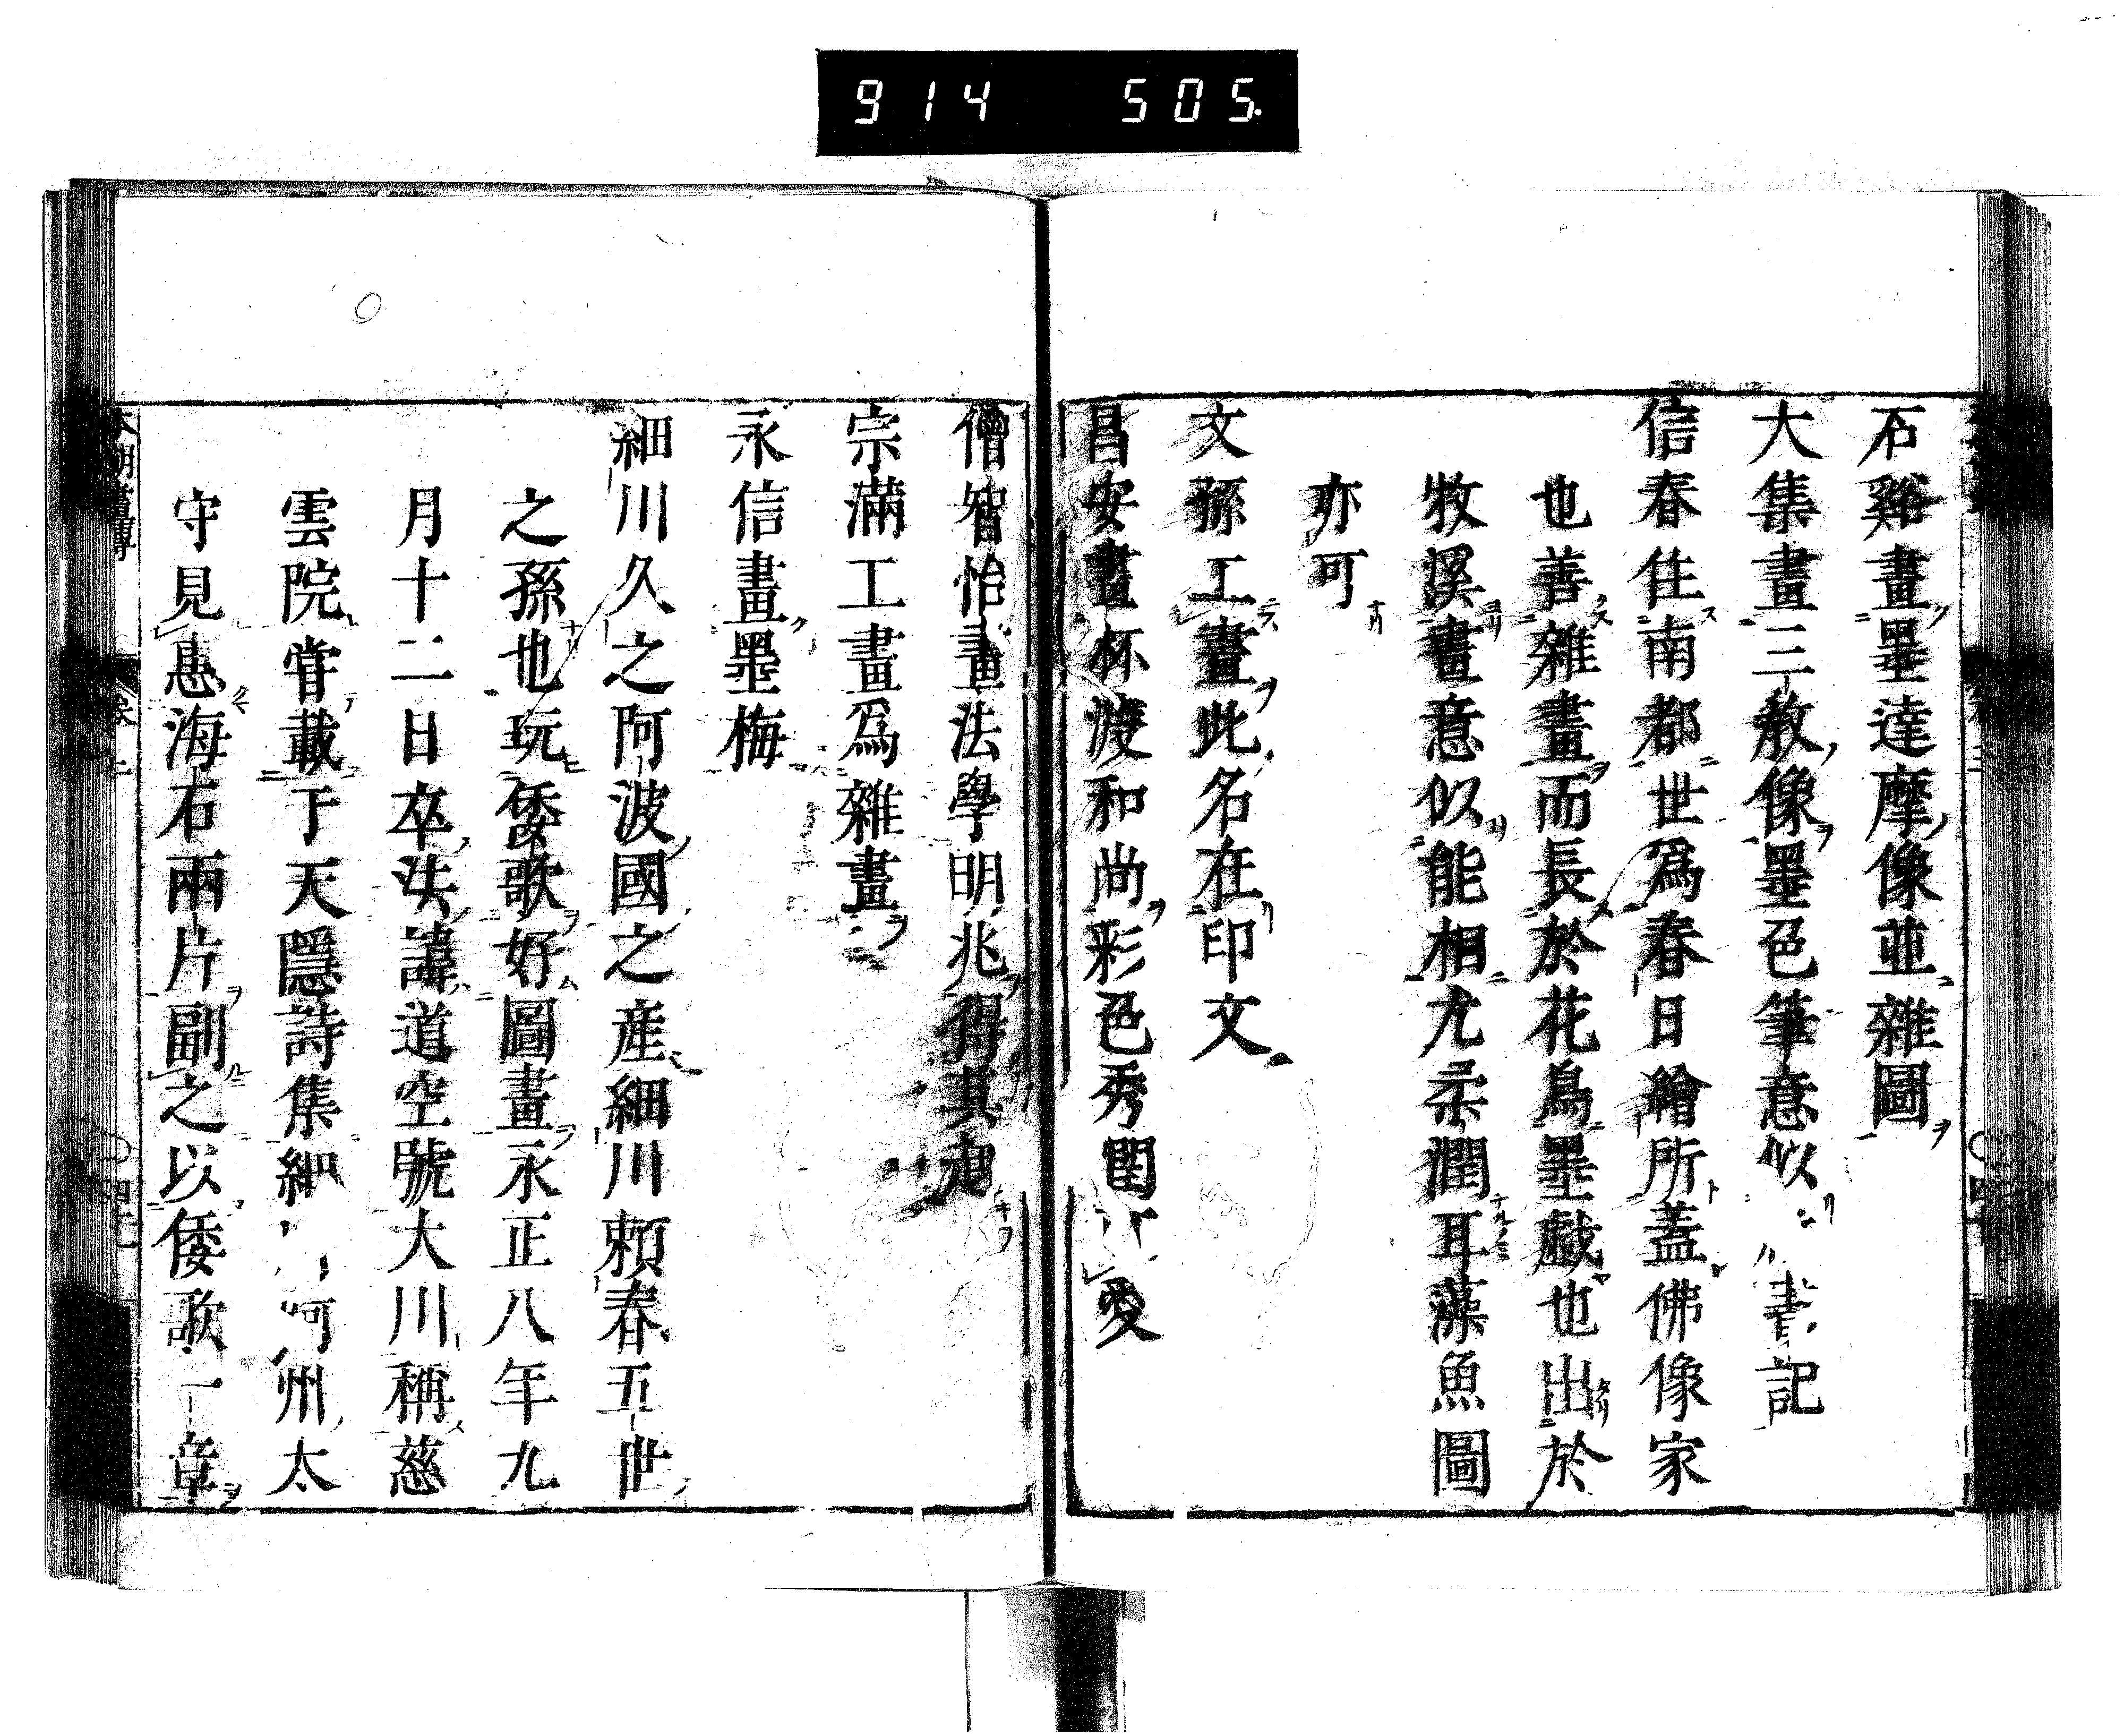 914 505
石谿畫墨達摩像並雜圖
大集畫三教像墨色筆意似書記
信春住南都世爲春日繪所蓋佛像家
也善雜畫而長於花鳥墨戯也出於
牧溪畫意似能相尤柔潤耳藻魚圖
亦可
文孫工畫此名在印文
昌安畫杯渡和尚彩色秀潤愛
僧智怡畫法學明兆得其
宗滿工畫爲雜畫
永信畫墨梅
細川久之阿波國之産細川頼春五世
之孫也玩倭歌好圖畫永正八年九
月十二日卒法諱道空號大川稱慈
雲院甞載于天隱詩集細州太
守見惠海石兩片副之以倭歌一章